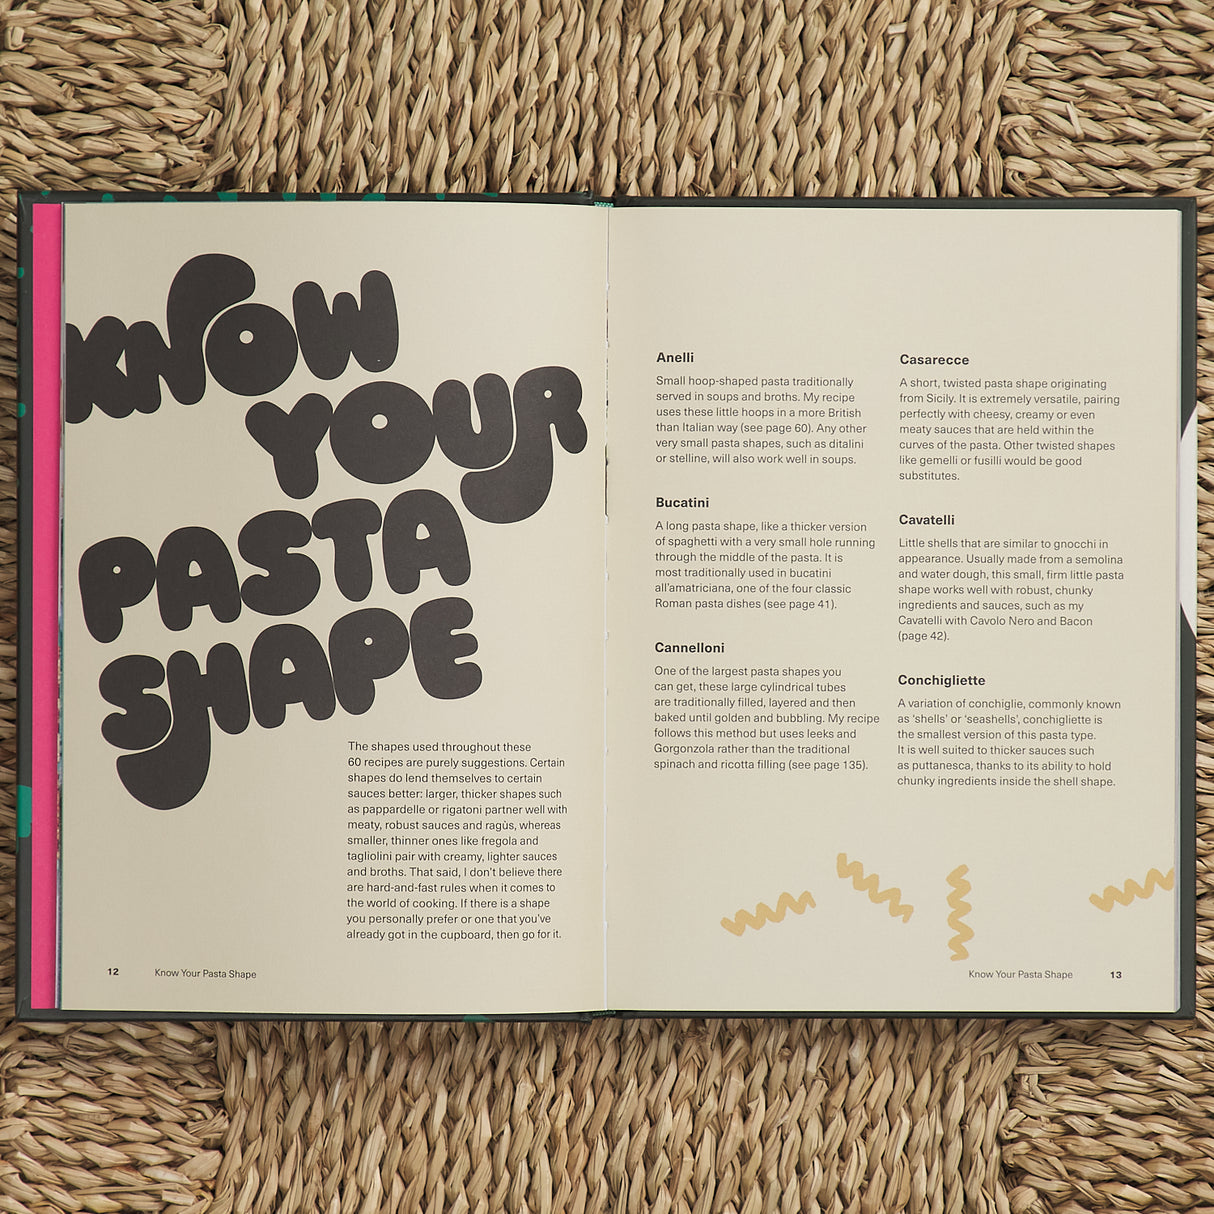 KNOW
YOUR
PASTA
SHAPE
The shapes used throughout these
60 recipes are purely suggestions. Certain
shapes do lend themselves to certain
sauces better: larger, thicker shapes such
as pappardelle or rigatoni partner well with
meaty, robust sauces and ragùs, whereas
smaller, thinner ones like fregola and
tagliolini pair with creamy, lighter sauces
and broths. That said, I don't believe there
are hard-and-fast rules when it comes to
the world of cooking. If there is a shape
you personally prefer or one that you've
already got in the cupboard, then go for it.
12 Know Your Pasta Shape
Anelli
Small hoop-shaped pasta traditionally
served in soups and broths. My recipe
uses these little hoops in a more British
than Italian way (see page 60). Any other
very small pasta shapes, such as ditalini
or stelline, will also work well in soups.
Bucatini
A long pasta shape, like a thicker version
of spaghetti with a very small hole running
through the middle of the pasta. It is
most traditionally used in bucatini
all'amatriciana, one of the four classic
Roman pasta dishes (see page 41).
Cannelloni
One of the largest pasta shapes you
can get, these large cylindrical tubes
are traditionally filled, layered and then
baked until golden and bubbling. My recipe
follows this method but uses leeks and
Gorgonzola rather than the traditional
spinach and ricotta filling (see page 135).
Casarecce
A short, twisted pasta shape originating
from Sicily. It is extremely versatile, pairing
perfectly with cheesy, creamy or even
meaty sauces that are held within the
curves of the pasta. Other twisted shapes
like gemelli or fusilli would be good
substitutes.
Cavatelli
Little shells that are similar to gnocchi in
appearance. Usually made from a semolina
and water dough, this small, firm little pasta
shape works well with robust, chunky
ingredients and sauces, such as my
Cavatelli with Cavolo Nero and Bacon
(page 42).
Conchigliette
A variation of conchiglie, commonly known
as 'shells' or 'seashells', conchigliette is
the smallest version of this pasta type.
It is well suited to thicker sauces such
as puttanesca, thanks to its ability to hold
chunky ingredients inside the shell shape.
Know Your Pasta Shape 13